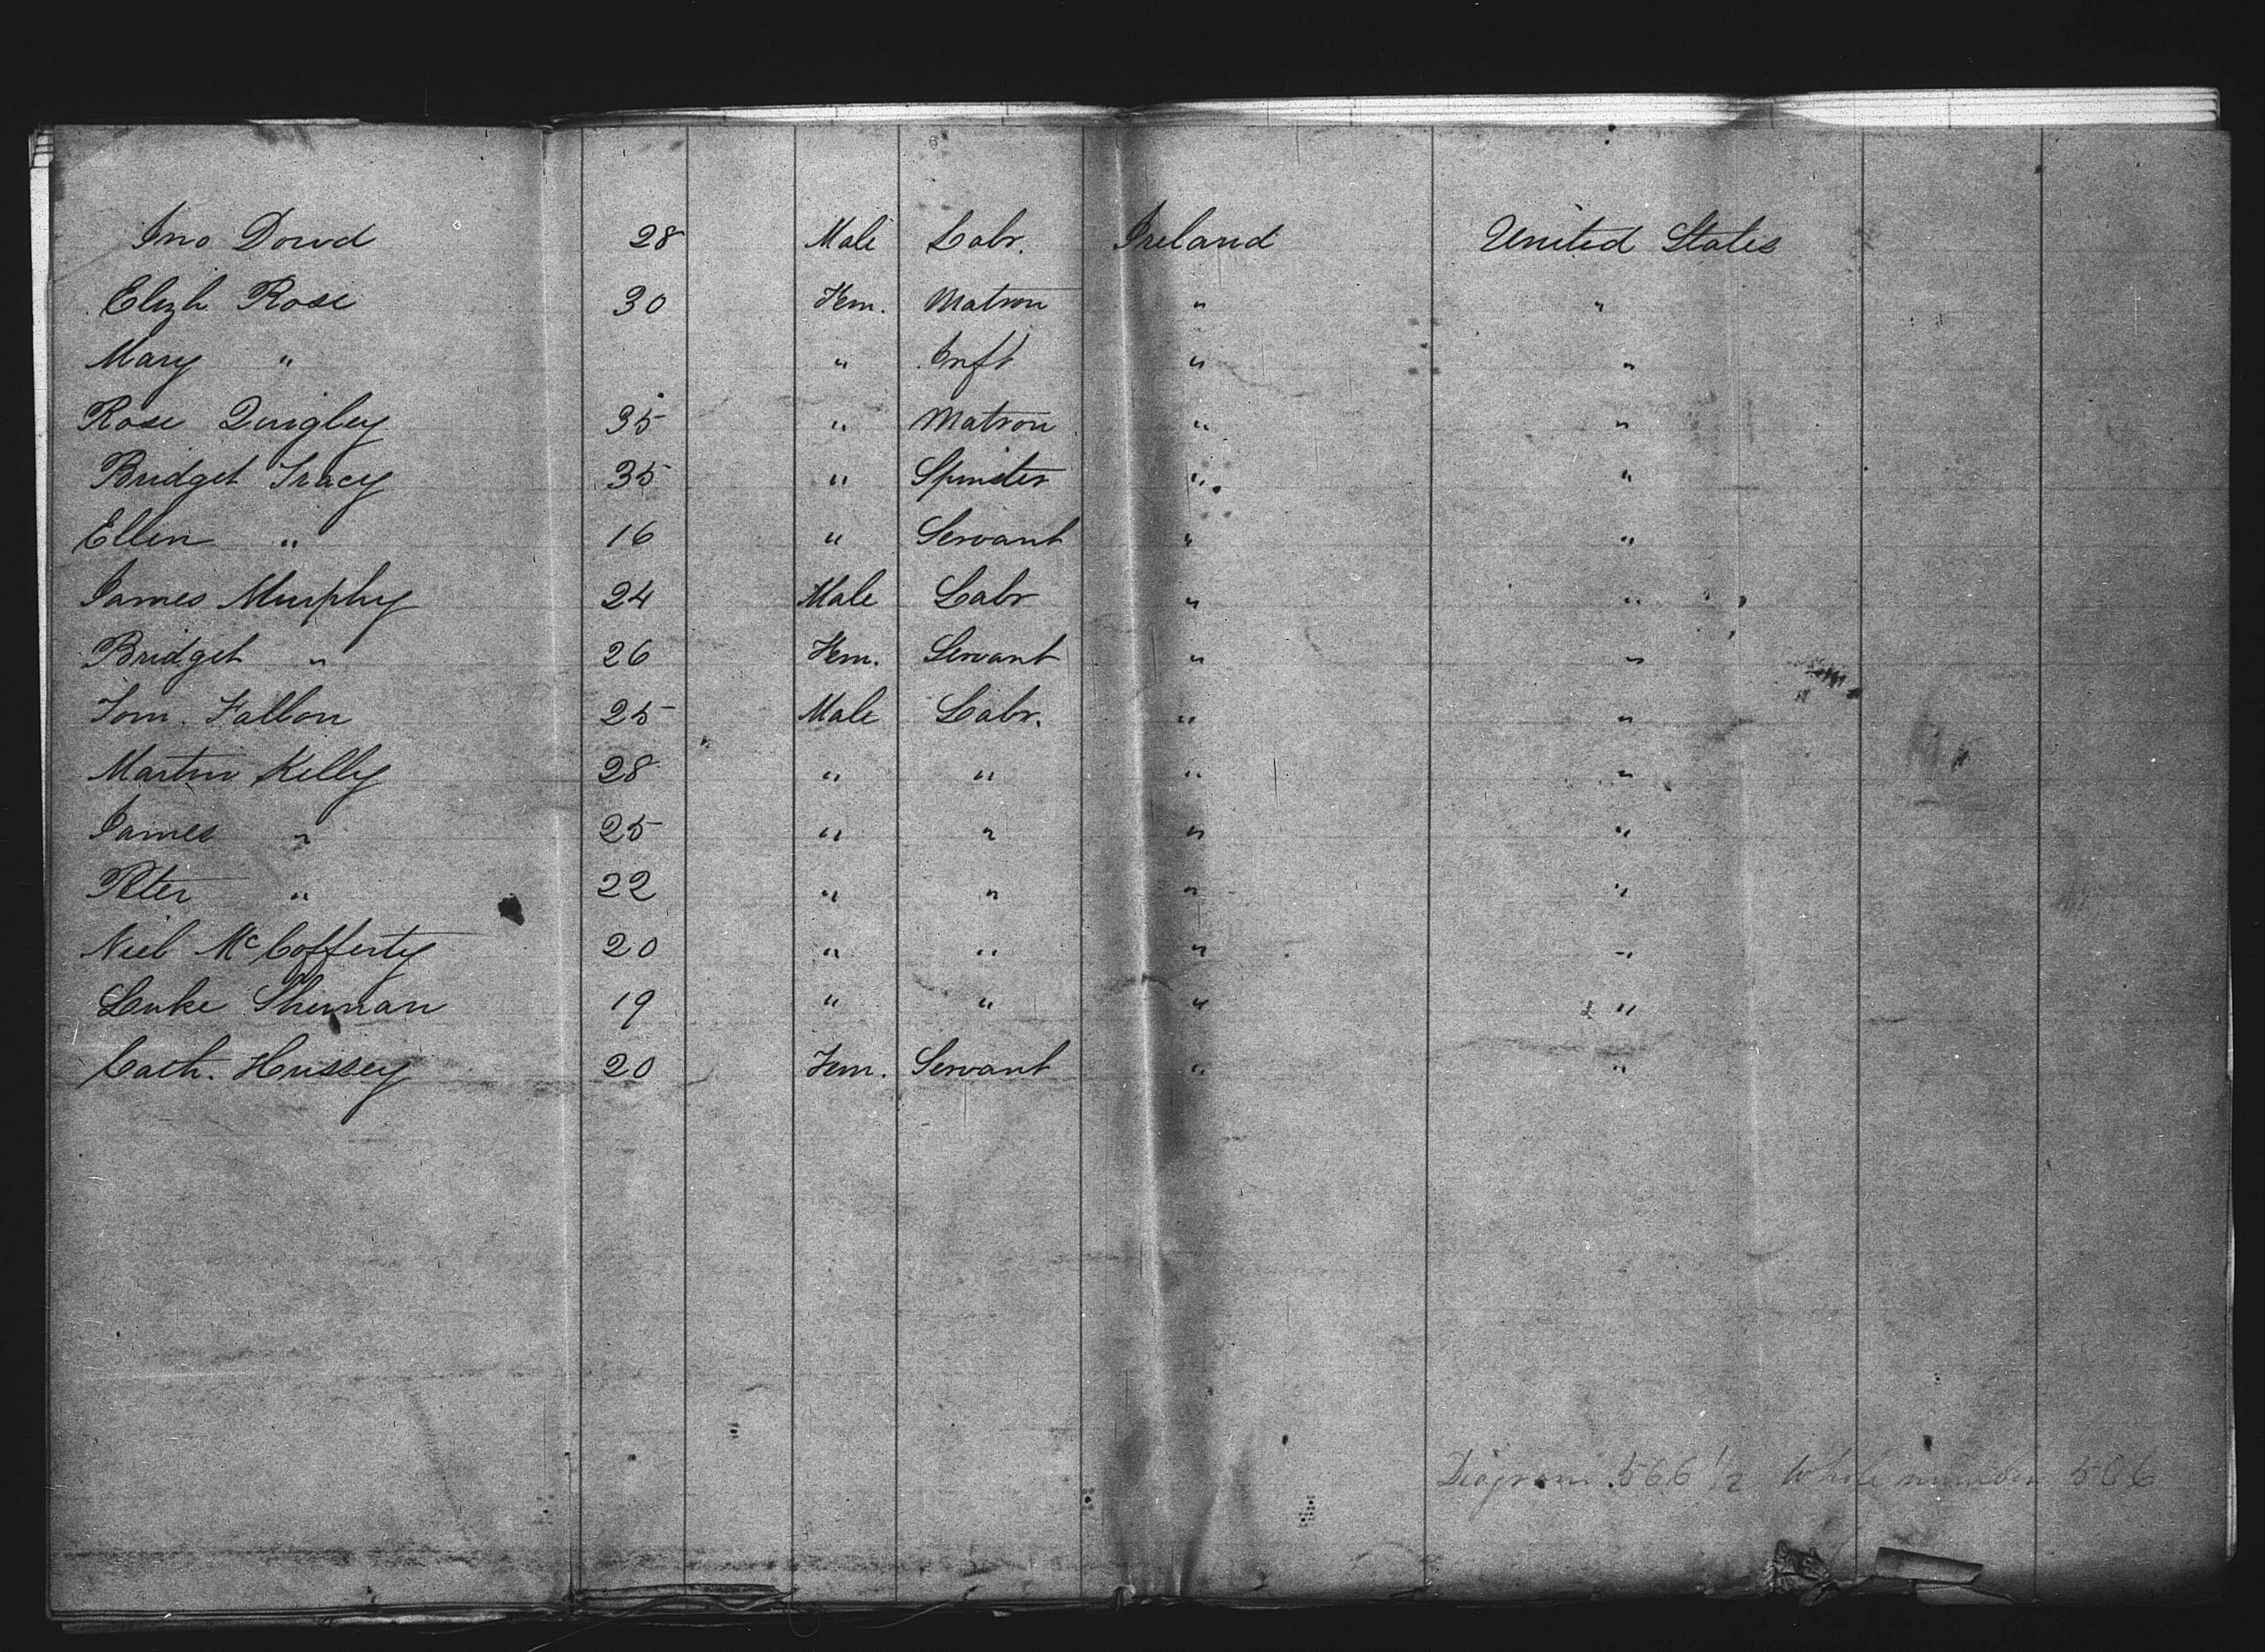 Jno Dowd 28 Male Labr. Ireland United States
Elizh Rose 30 Fem. Matron " "
Mary " " Inft " "
Rose Quigley 35 " Matron " "
Bridget Tracy 35 " Spinster " "
Ellen " 16 " Servant " "
James Murphy 24 Male Labr " "
Bridget " 26 Fem. Servant " "
Tom. Fallon 25 Male Labr. " "
Martin Kelly 28 " " " "
James " 25 " " " "
Peter " 22 " " " "
Niel McCofferty 20 " " " "
Luke Shernan 19 " " " "
Cath. Hussey 20 Fem. Servant " "
Diagram 566 1/2 Whole number 566